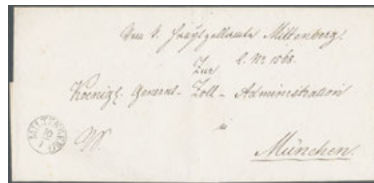 Vom k. Hauptzollamte Miltenberg.
E. Nr 1068.
Zur
Koenigl. General-Zoll-Administration
in
München.
MILTENBERG